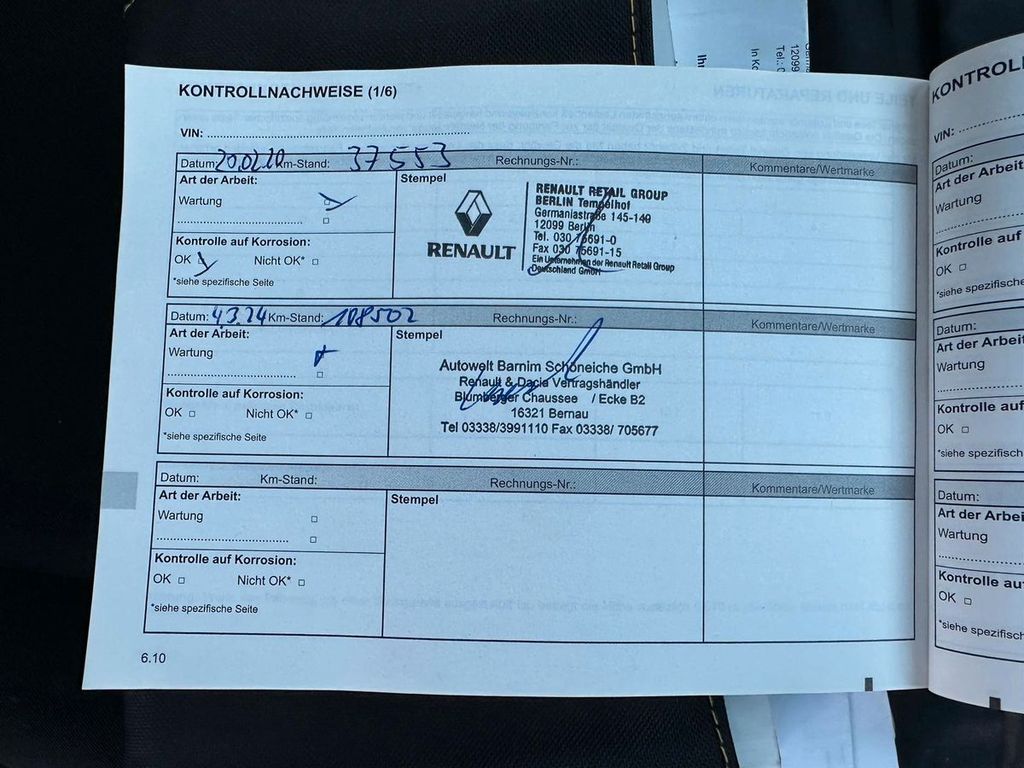 KONTROLLNACHWEISE (1/6)
VIN:
Datum: 20.02.20 Km-Stand: 37553 Rechnungs-Nr.: Kommentare/Wertmarke
Art der Arbeit: Stempel
Wartung
Kontrolle auf Korrosion:
OK Nicht OK*
*siehe spezifische Seite
RENAULT
RENAULT RETAIL GROUP
BERLIN Tempelhof
Germaniastraße 145-149
12099 Berlin
Tel. 030 75691-0
Fax 030 75691-15
Ein Unternehmen der Renault Retail Group
Deutschland GmbH
Datum: 4.3.24 Km-Stand: 108502 Rechnungs-Nr.: Kommentare/Wertmarke
Art der Arbeit: Stempel
Wartung
Kontrolle auf Korrosion:
OK Nicht OK*
*siehe spezifische Seite
Autowelt Barnim Schöneiche GmbH
Renault & Dacia Vertragshändler
Blumberger Chaussee / Ecke B2
16321 Bernau
Tel 03338/3991110 Fax 03338/ 705677
Datum: Km-Stand: Rechnungs-Nr.: Kommentare/Wertmarke
Art der Arbeit: Stempel
Wartung
Kontrolle auf Korrosion:
OK Nicht OK*
*siehe spezifische Seite
6.10
KONTROL
VIN:
Datum:
Art der Arbeit
Wartung
Kontrolle auf
OK
*siehe spezifische
Datum:
Art der Arbeit
Wartung
Kontrolle auf
OK
*siehe spezifisch
Datum:
Art der Arbei
Wartung
Kontrolle au
OK
*siehe spezifisc
12099
Tel.:
In Ko